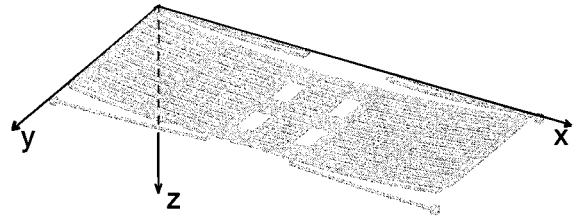 y
z
x